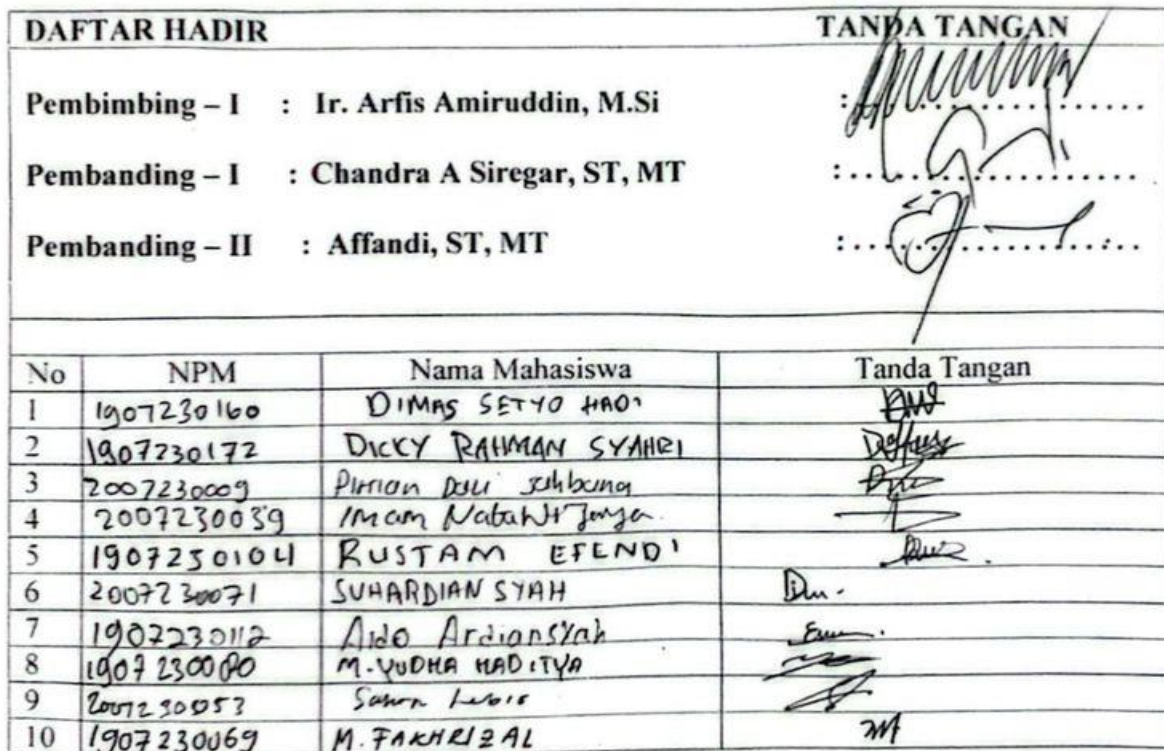 DAFTAR HADIR TANDA TANGAN
Pembimbing – I : Ir. Arfis Amiruddin, M.Si :....................
Pembanding – I : Chandra A Siregar, ST, MT :....................
Pembanding – II : Affandi, ST, MT :....................
No NPM Nama Mahasiswa Tanda Tangan
1 1907230160 DIMAS SETYO HADI
2 1907230172 DICKY RAHMAN SYAHRI
3 2007230009
4 2007230039 Imam
5 1907230104 RUSTAM EFENDI
6 2007230071 SUHARDIANSYAH
7 1907230112 Aldo Ardiansyah
8 1907230080 M. YUDHA HADITYA
9 2007230053
10 1907230069 M. FAKHRIZAL